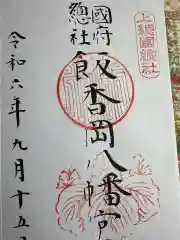 上総國総社
國府
總社
飯香岡八幡宮
令和六年九月十五日